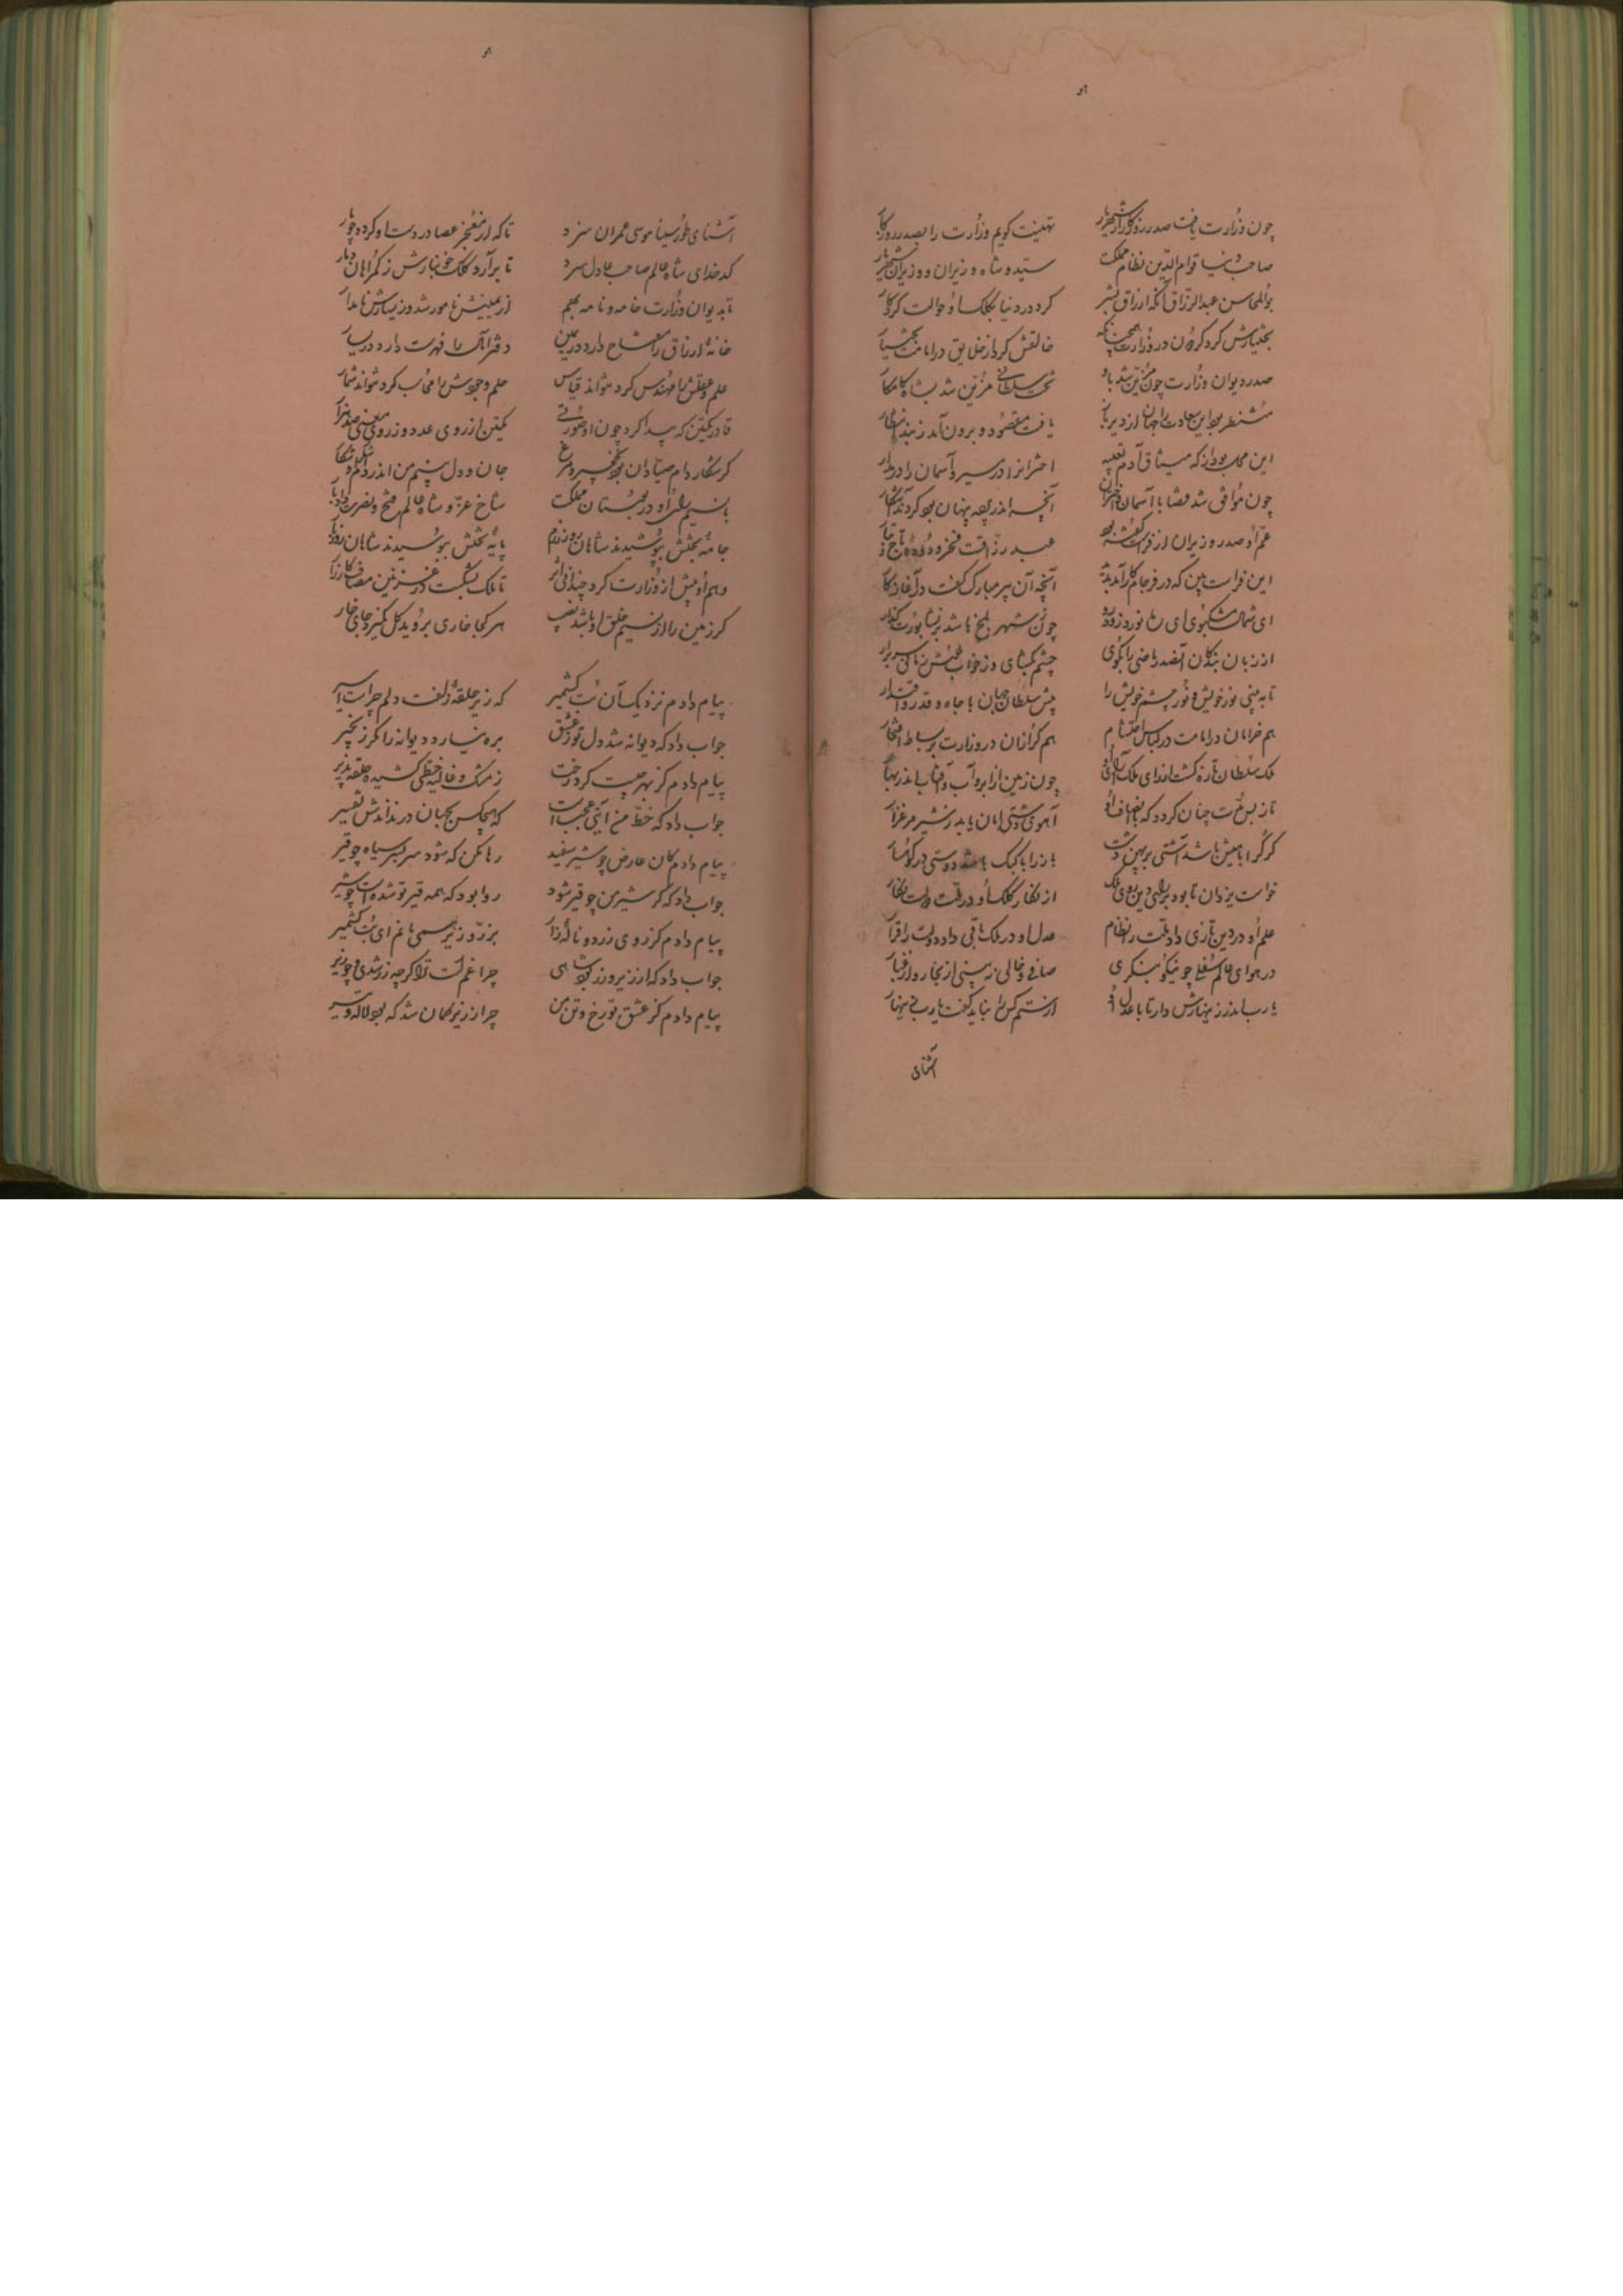 چون وزارت یافت صدر روزگار از شهریار تهنیت گویم وزارت را بصدر روزگار
صاحب دنیا قوام الدین نظام مملکت سید و شاه وزیران و وزیر شهریار
بوالمحاسن عبدالرزاق آنکه ارزاق بشر کرد در دنیا بکلک او حوالت کردگار
بختیارش کرد گردون در وزارت همچنانکه خالقش کرد از خلایق در امامت بختیار
صدر دیوان وزارت چون مزین شد باو تخت سلطانی مزین شد بشاه کامکار
منتظر بود این سعادت را جهان از دیرباز یافت مقصود و برون آمد ز بند انتظار
این مهمات بود از گه میثاق آدم تعبیه اخترانرا در مسیر و آسمان را در مدار
چون موافق شد قضا با آسمان و اختران آنچه اندر پرده پنهان بود کردند آشکار
عم او صدر وزیران از فراست گفته بود عبد رزاقست فخر دوده و تاج تبار
این فراست بین که در فرجام کار آمد پدید آنچه آن پیر مبارک گفت در آغاز کار
ای شمال مشکبوی ای ره نورد زود رو چون ز شهر بلخ باشد بر نشابورت گذار
از زبان بندگان آنصدر ماضی را بگوی چشم بگشای و ز خواب خوش زمانی سر برآر
تا ببینی نور خویش و نور چشم خویش را پیش سلطان جهان با جاه و قدر و اقتدار
هم خرامان در امامت در لباس احتشام هم گرازان در وزارت بر بساط افتخار
ملک سلطان تازه گشت از رای ملک آرای او چون زمین از ابر و آب و آفتاب اندر بهار
تا ز بس منت چنان گردد که بانصاف او آهوی دشتی امان یابد ز شیر مرغزار
گرگ را با میش باشد آشتی بر پهن دشت باز را با کبک باشد دوستی در کوهسار
خواست یزدان تا بود بر روی دین روی ملک از نگار کلک او در وقت دولت نگار
علم او در دین تازی داد ملت را نظام عدل او در ملک باقی داد دولت را قرار
در هوای عالم سفلی چو نیکو بنگری صافی و خالی نه بینی از بخار و از غبار
یارب اندر زینهارش دار تا با عدل او از ستم کس را نباید گفت یارب زینهار
آشنای
آشنای طور سینا موسی عمران سزد تا که از معجز عصا در دست او گردد چو مار
کدخدای شاه عالم صاحب عادل سزد تا برآرد کلک خونبارش ز گمراهان دمار
تا بدیوان وزارت خامه و نامه بهم از یمینش نامور شد وز یسارش نامدار
خانه ارزاق را مفتاح دارد در یمین دفتر آمال را فهرست دارد در یسار
علم و عقلش را مهندس کرد نتواند قیاس حلم و جودش را محاسب کرد نتواند شمار
قادر یکتن که پیدا کرد چون او صورتی یکتن از روی عدد وز روی معنی صد هزار
گر شکار دام صیادان بود نخجیر و مرغ جان و دل بینم من اندر دام شکار
با نسیم او در بوستان مملکت شاخ عز و شاه عالم فتح و نصرت داد بار
جامه بختش بپوشیدند شاهان روز بزم پایه تختش ببوسیدند شاهان روز بار
وهم او پیش از وزارت کرد چندانی اثر تا ملک بشکست در غزنین مصاف کارزار
گر زمین را از نسیم خلق او باشد نصیب هر کجا خاری بروید گل بگیرد جای خار
پیام دادم نزدیک آن بت کشمیر که زیر حلقه زلفت دلم چراست اسیر
جواب داد که دیوانه شد دل تو ز عشق بره نیارد دیوانه را مگر زنجیر
پیام دادم کز بهر چیست گرد رخت ز مشک و غالیه خطی کشیده حلقه پذیر
جواب داد که خط رخ من آیتی عجب است که هیچکس بجهان در نداندش تفسیر
پیام دادم کان عارض چو شیر سفید رها مکن که شود سربسر سیاه چو قیر
جواب داد که گر شیر من چو قیر شود روا بود که همه قیر تو شده است چو شیر
پیام دادم کز روی زرد و ناله زار بزر و زیر همی مانم ای بت کشمیر
جواب داد که از زیر و زر بود شاهی چرا غم است ترا گرچه زر شدی و چو زیر
پیام دادم کز عشق تو رخ و تن من چرا زریر و کمان شد که بود لاله و تیر